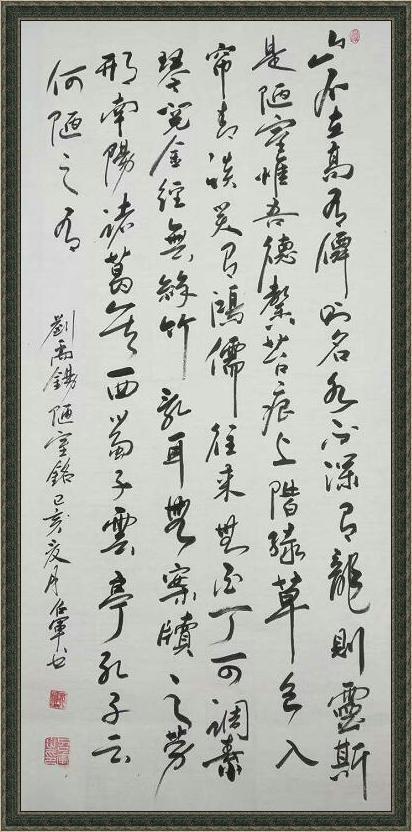 山不在高有僊则名水不深有龍則靈斯
是陋室惟吾德馨苔痕上階緑草色入
帘青談笑有鴻儒往來無白丁可調素
琴閲金經無絲竹亂耳無案牘之勞
形南陽諸葛廬西蜀子雲亭孔子云
何陋之有
劉禹錫陋室銘己亥夏月任軍书